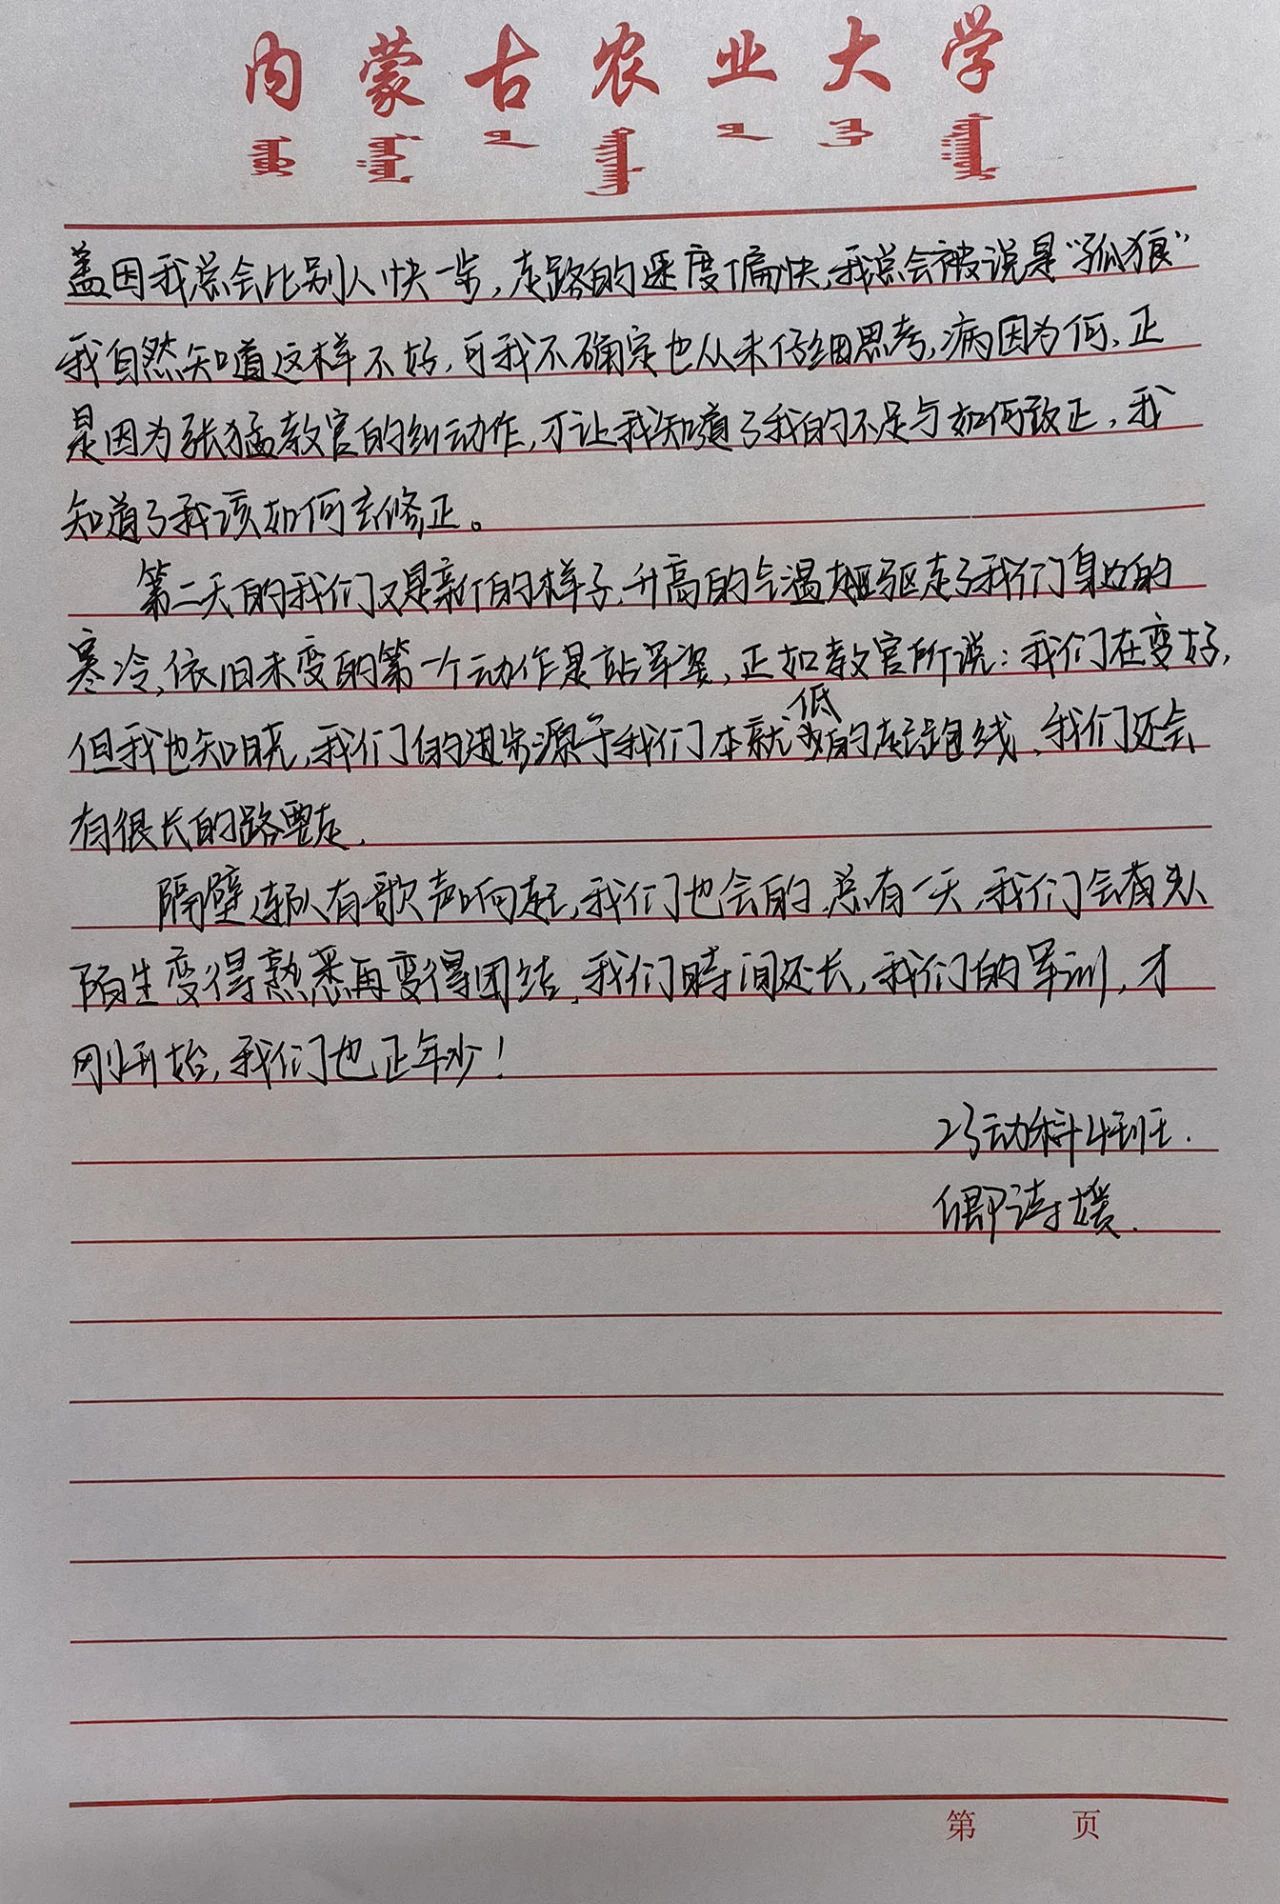 内蒙古农业大学
盖因我总会比别人快一步,走路的速度偏快,我总会被说是“孤狼”
我自然知道这样不好,可我不确定也从未仔细思考,病因为何,正
是因为张猛教官的纠动作,才让我知道了我的不足与如何改正,我
知道了我该如何去修正。
第二天的我们又是新的样子,升高的气温驱走了我们身边的
寒冷,依旧未变的第一个动作是站军姿,正如教官所说:我们在变好,
但我也知晓,我们的进步源于我们本就低的起跑线,我们还会
有很长的路要走.
隔壁连队有歌声响起,我们也会的,总有一天,我们会从
陌生变得熟悉再变得团结,我们时间还长,我们的军训,才
刚开始,我们也正年少!
23动科4班.
卿诗媛.
第 页